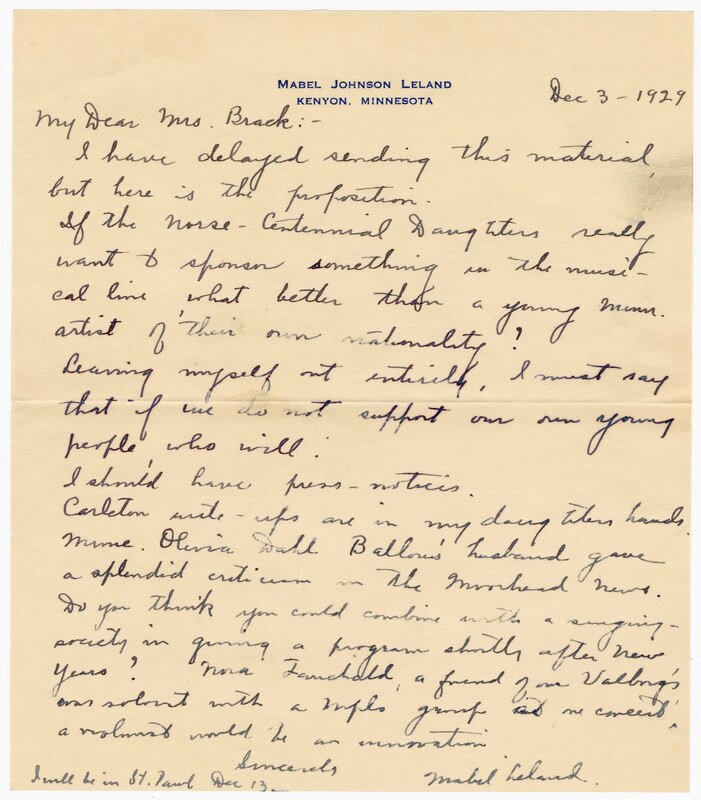 MABEL JOHNSON LELAND
KENYON, MINNESOTA
Dec 3 - 1929
My Dear Mrs. Brack:-
I have delayed sending this material,
but here is the proposition.
If the Norse-Centennial Daughters really
want to sponsor something in the musi-
cal line, what better than a young Minn.
artist of their own nationality?
Leaving myself out entirely, I must say
that if we do not support our own young
people, who will?
I should have press-notices.
Carleton write-ups are in my daughters hands.
Mme. Olivia Dahl Ballou's husband gave
a splendid criticism in the Moorhead News.
Do you think you could combine with a singing-
society in giving a program shortly after New
Years? Nora Fauchald, a friend of our Valborg's
was soloist with a Mpls group at one concert,
a violinist would be an innovation
Sincerely
Mabel Leland.
I will be in St. Paul Dec 13.